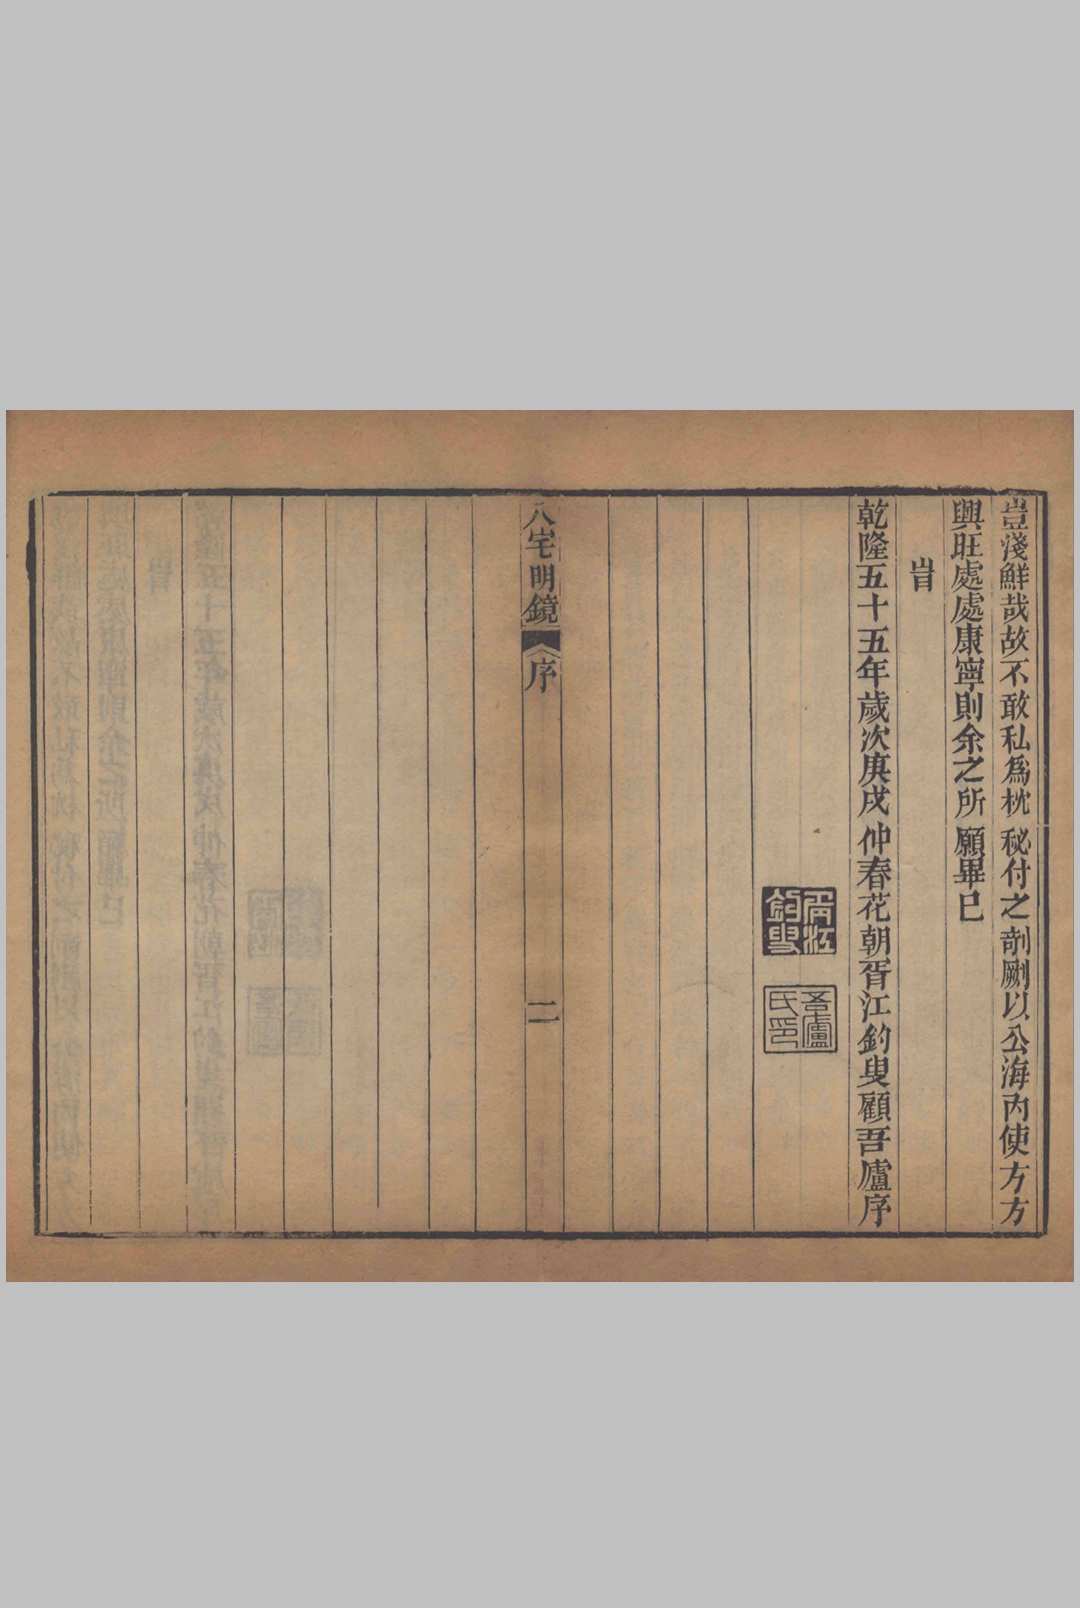 豈淺鮮哉故不敢私為枕秘付之剞劂以公海內使方方
興旺處處康寧則余之所願畢已
旹
乾隆五十五年歲次庚戌仲春花朝胥江釣叟顧吾廬序
胥江
釣叟
吾廬
氏印
八宅明鏡 序 二